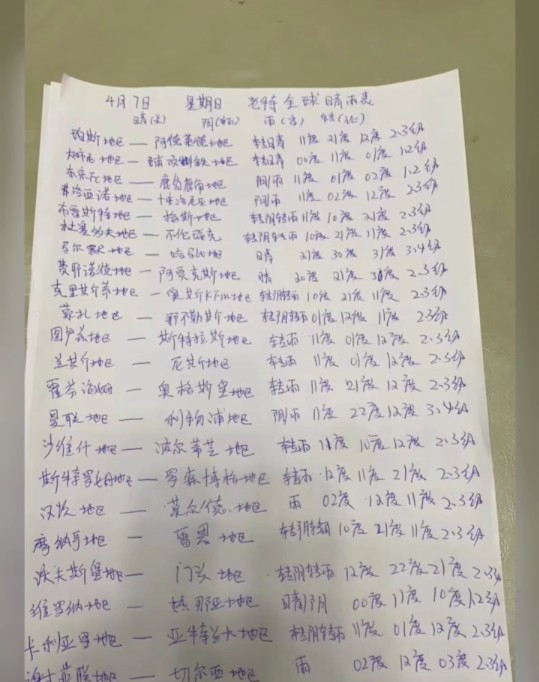 4月7日 星期日 老特全球晴雨表
晴(主) 阴( ) 雨(客) 转( )
玛斯地区 — 阿德莱德地区 转晴 11度 21度 12度 2.3级
地区 — 地区 转晴 00度 11度 01度 1.2级
地区 — 地区 阴雨 11度 01度 02度 1.2级
弗洛西诺地区 — 卡洛尼亚地区 阴雨 11度 02度 12度 2.3级
布雷斯特地区 — 梅斯 地区 转阴转雨 11度 10度 21度 2.3级
杜塞尔夫地区 — 不伦瑞克 转阴转雨 10度 21度 11度 2.3级
马尔默地区 — 哈马比地区 晴 31度 30度 31度 3.4级
费耶诺德地区 — 阿贾克斯地区 晴 30度 31度 30度 2.3级
克里斯蒂地区 — 奥斯KFUM地区 转阴转雨 10度 21度 11度 2.3级
蒙扎 地区 — 那不勒斯地区 转阴转雨 01度 12度 11度 2.3级
图卢兹地区 — 斯特拉斯地区 转雨 11度 01度 12度 2.3级
兰斯 地区 — 尼斯 地区 转雨 11度 01度 12度 2.3级
霍芬海姆 — 奥格斯堡地区 转雨 11度 21度 12度 2.3级
曼联地区 — 利物浦地区 阴雨 11度 22度 12度 3.4级
沙维什 地区 — 波尔蒂芒 地区 转雨 11度 10度 12度 2.3级
斯特罗姆地区 — 罗森博格地区 转雨 12度 11度 21度 2.3级
汉坎 地区 — 莫尔德 地区 雨 02度 12度 11度 2.3级
摩纳哥 地区 — 雷恩 地区 转阴转晴 10度 21度 11度 2.3级
沃夫斯堡地区 — 门兴 地区 转阴转雨 12度 22度 21度 2.3级
维罗纳地区 — 热那亚地区 晴阴 00度 11度 10度 1.2级
卡利亚里地区 — 亚特兰大地区 转阴转雨 11度 01度 12度 2.3级
谢菲联地区 — 切尔西地区 雨 02度 12度 03度 2.3级